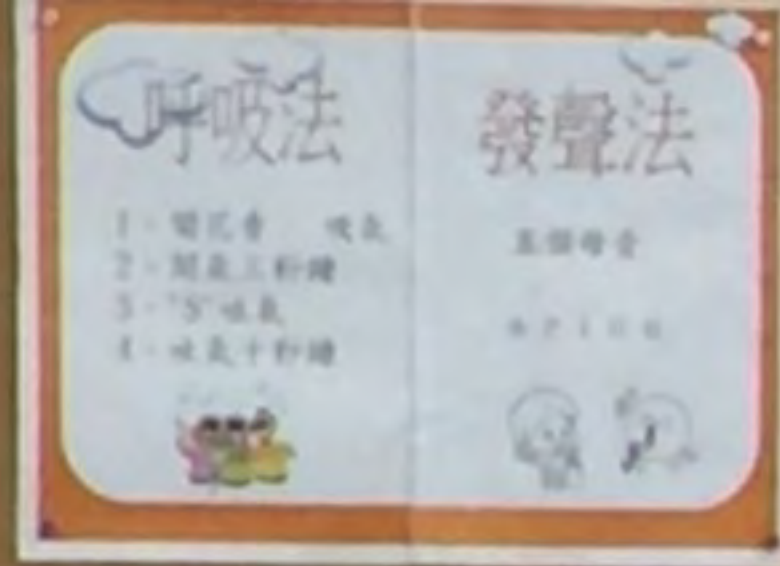 呼吸法
1、聞花香 吸氣
2、閉氣三秒鐘
3、"S"吐氣
4、吐氣十秒鐘
發聲法
五個母音
a e i o u